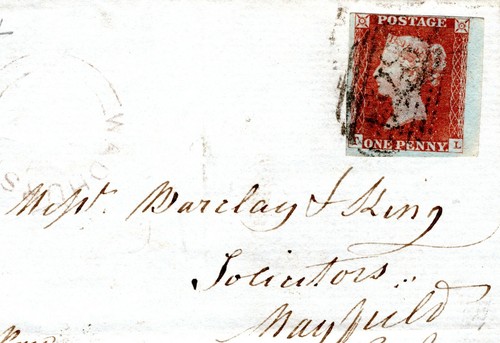 POSTAGE
ONE PENNY L
Messrs. Barclay & King
Solicitors
Mayfield